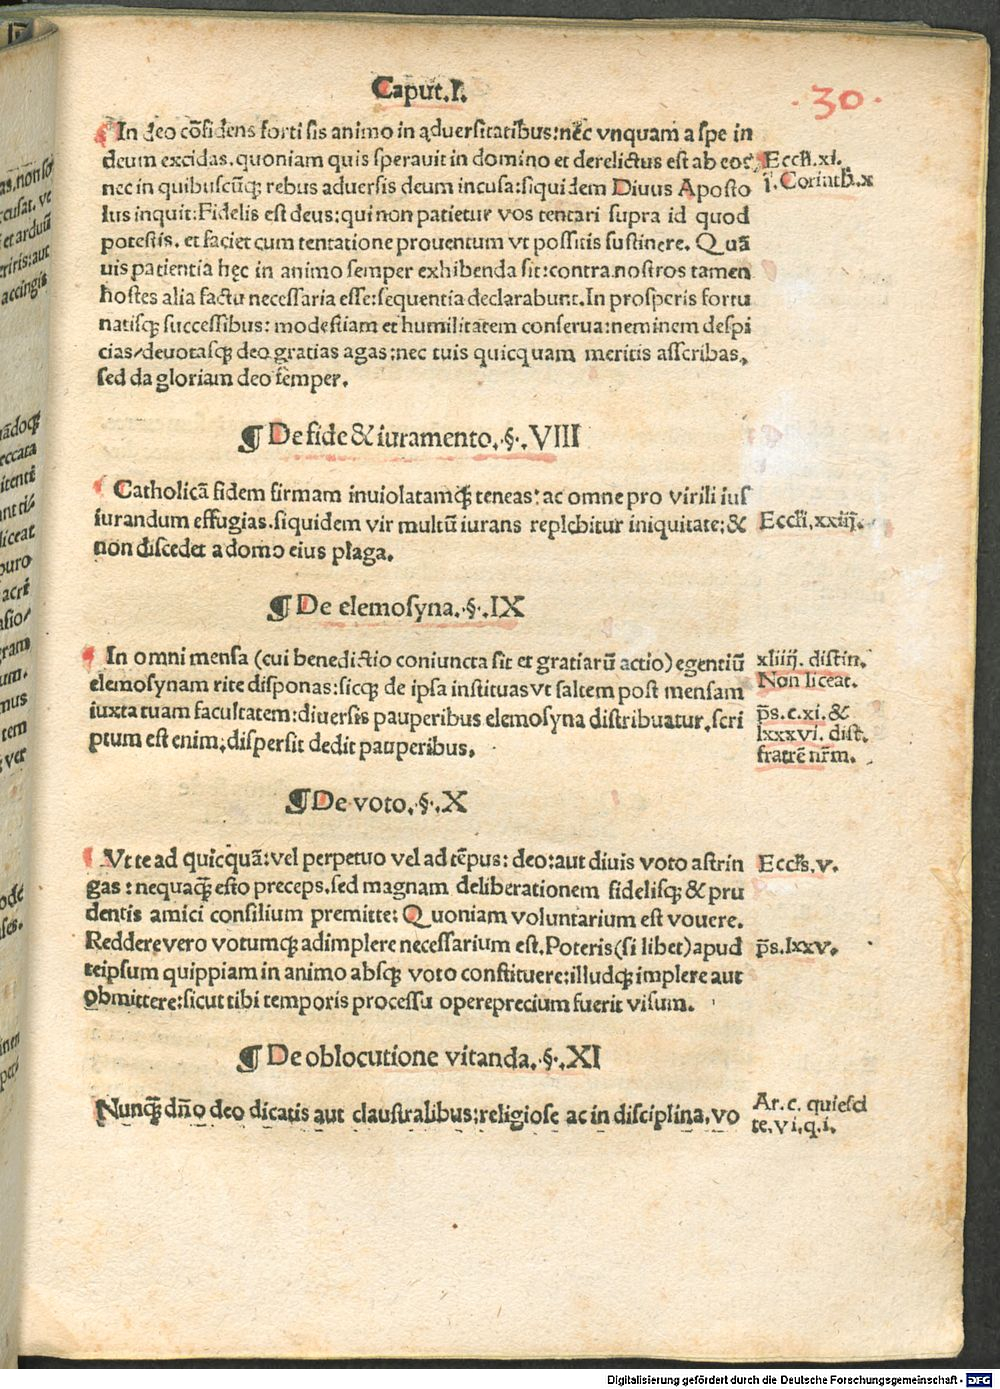 Caput.I.
.30.
In deo cõfidens forti sis animo in aduersitatibus: nec vnquam a spe in
deum excidas. quoniam quis sperauit in domino et derelictus est ab eo:
nec in quibuscũqꝫ rebus aduersis deum incusa: siquidem Diuus Aposto
lus inquit: Fidelis est deus: qui non patietur vos tentari supra id quod
potestis. et faciet cum tentatione prouentum vt possitis sustinere. Quã
uis patientia hęc in animo semper exhibenda sit: contra nostros tamen
hostes alia factu necessaria esse: sequentia declarabunt. In prosperis fortu
natisqꝫ successibus: modestiam et humilitatem conserua: neminem despi
cias/deuotasqꝫ deo gratias agas: nec tuis quicquam meritis asscribas,
sed da gloriam deo semper.
Eccłi.xi.
i. Corinth.x
¶ De fide & iuramento. §. VIII
Catholicã fidem firmam inuiolatamqꝫ teneas: ac omne pro virili ius
iurandum effugias. siquidem vir multũ iurans replebitur iniquitate: &
non discedet a domo eius plaga.
Eccłi, xxiij.
¶ De elemosyna. §. IX
In omni mensa (cui benedictio coniuncta sit et gratiarũ actio) egentiũ
elemosynam rite disponas: sicqꝫ de ipsa instituas vt saltem post mensam
iuxta tuam facultatem: diuersis pauperibus elemosyna distribuatur. scri
ptum est enim; dispersit dedit pauperibus.
xliiij. distin.
Non liceat.
p̃s. c. xi. &
lxxxvi. dist.
fratrẽ nr̃m.
¶ De voto. §. X
Vt te ad quicquã: vel perpetuo vel ad tẽpus: deo: aut diuis voto astrin
gas: nequaqꝫ esto preceps. sed magnam deliberationem fidelisqꝫ & pru
dentis amici consilium premitte: Quoniam voluntarium est vouere.
Reddere vero votumqꝫ adimplere necessarium est. Poteris (si libet) apud
teipsum quippiam in animo absqꝫ voto constituere: illudqꝫ implere aut
obmittere: sicut tibi temporis processu opereprecium fuerit visum.
Eccłs. v.
p̃s. lxxv.
¶ De oblocutione vitanda. §. XI
Nunqꝫ dño deo dicatis aut claustralibus: religiose ac in disciplina, vo
Ar. c. quiesci
te. vi, q. i.
Digitalisierung gefördert durch die Deutsche Forschungsgemeinschaft - DFG